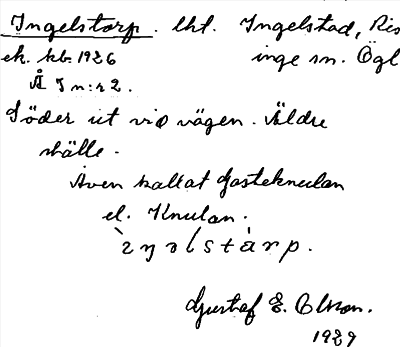 Ingelstorp. lht. Ingelstad, Ris
ek. kb 1926 inge sn. Ögl
Å I n:r 2.
Söder ut vid vägen. Äldre
ställe.
Även kallat Gosteknulan
el. Knulan.
Gustaf E. Olsson.
1929